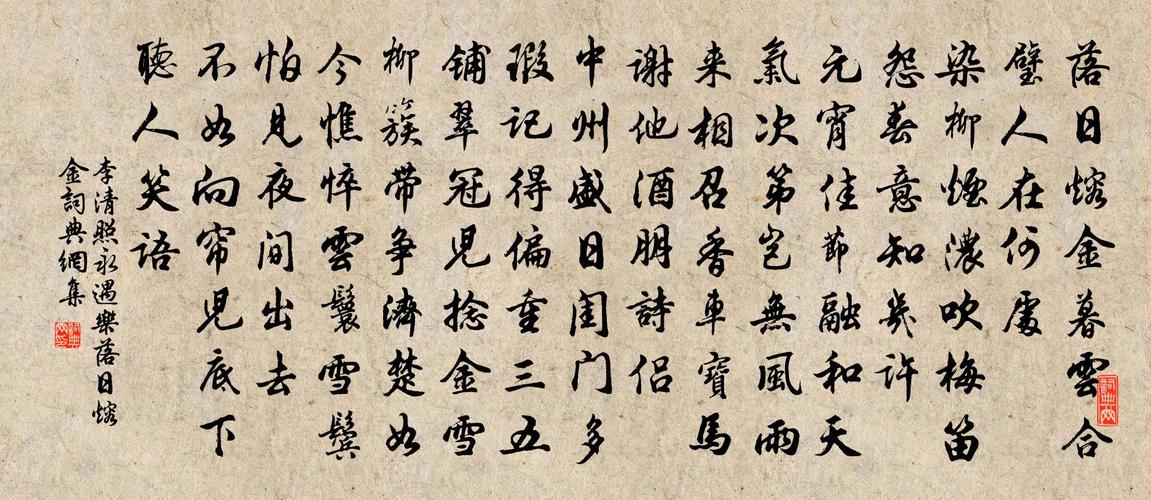 落日熔金暮雲合
璧人在何處
染柳煙濃吹梅笛
怨春意知幾許
元宵佳節融和天
氣次第豈無風雨
来相召香車寶馬
謝他酒朋詩侶
中州盛日閨门多
瑕記得偏重三五
鋪翠冠兒捻金雪
柳簇帶争濟楚如
今憔悴雲鬟雪鬢
怕見夜間出去
不如向帘兒底下
聽人笑語
李清照永遇樂落日熔
金詞典網集